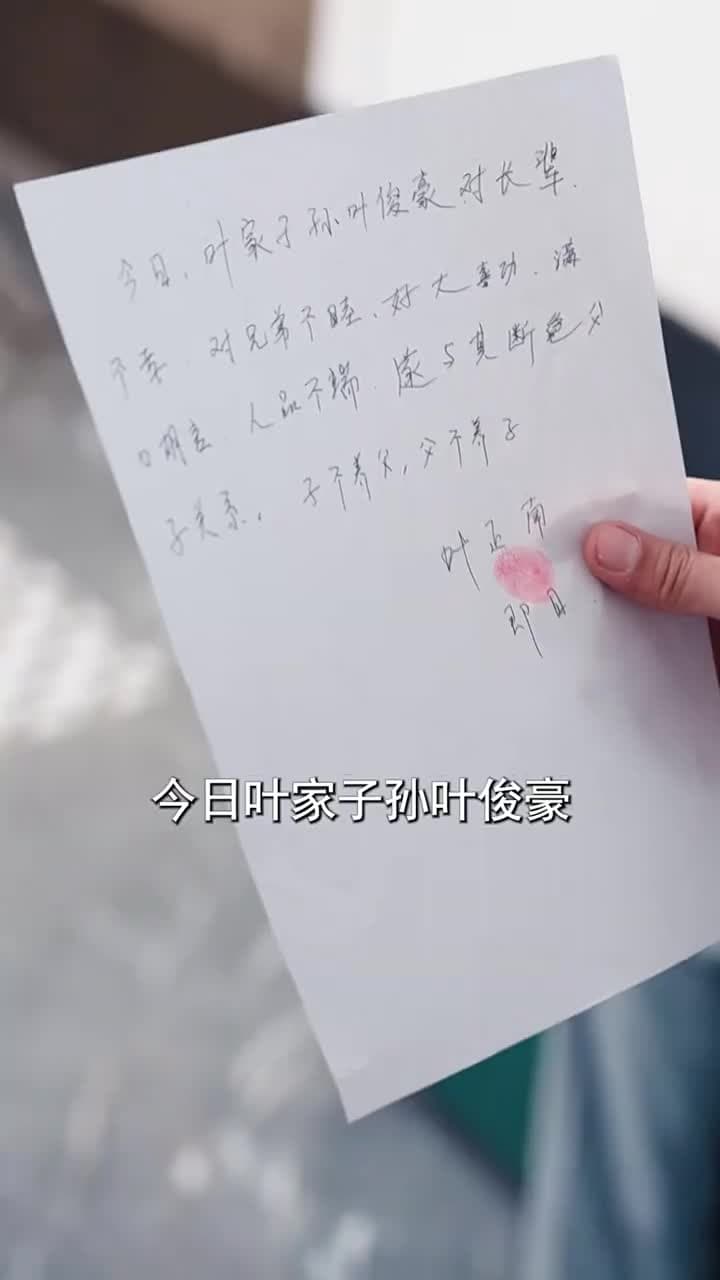 今日、叶家子孙叶俊豪.对长辈.
不孝.对兄弟不睦、好大喜功.满
口胡言.人品不端.遂与其断绝父
子关系,子不养父,父不养子
叶正南
即日.
今日叶家子孙叶俊豪